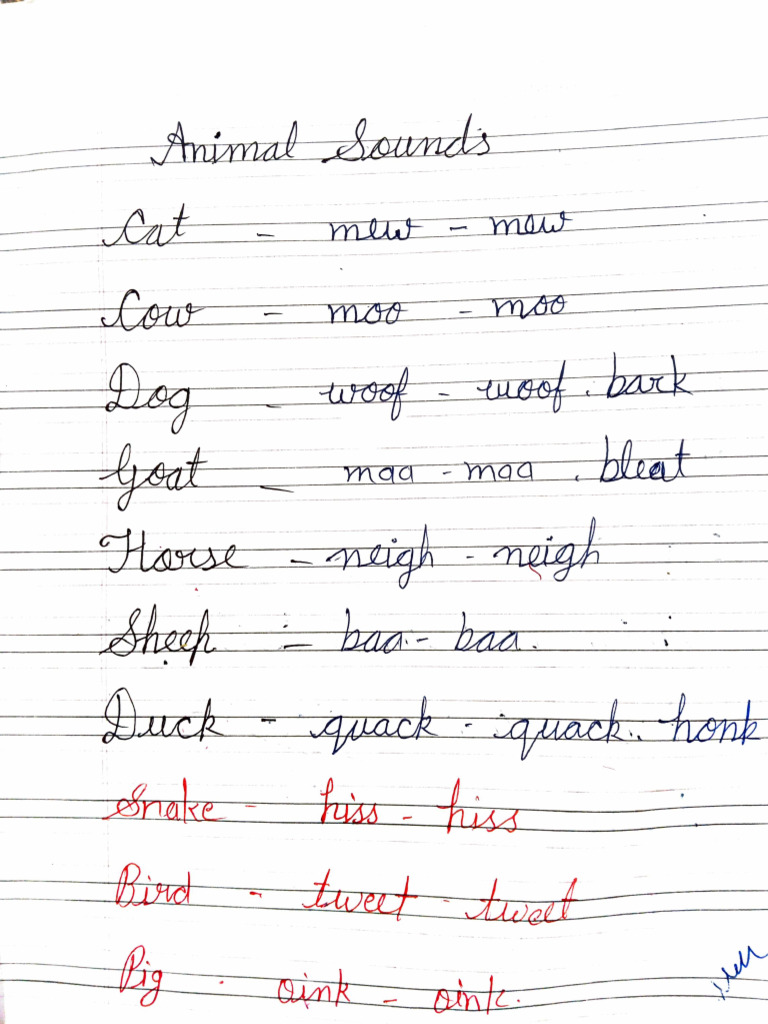 Animal Sounds
Cat - mew - mew
Cow - moo - moo
Dog - woof - woof . bark
Goat - maa - maa . bleat
Horse - neigh - neigh
Sheep - baa - baa.
Duck - quack - quack.. honk
Snake - hiss - hiss
Bird - tweet - tweet
Pig - oink - oink.